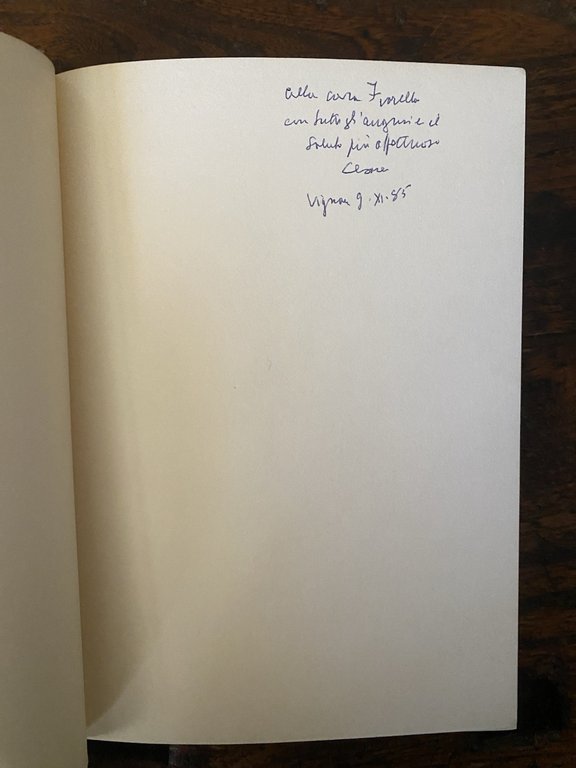 alla cara Fiorella
con tutti gl'auguri e il
saluto più affettuoso
Cesare
Vignon 9.XI.85